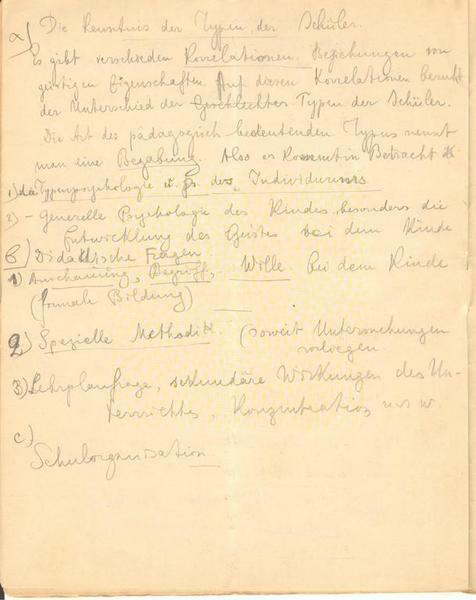 a) Die Kenntnis der Typen der Schüler.
Es gibt verschieden Korrelationen, Beziehungen von
geistigen Eigenschaften. Auf diesen Korrelationen beruht
der Unterschied der Geschlechter Typen der Schüler.
Die Art des pädagogisch bedeutenden Typus nennt
man eine Begabung. Also es kommt in Betracht
1) die Typenpsychologie u. des Individuums
2) - Generelle Psychologie des Kindes, besonders die
Entwicklung des Geistes bei dem Kinde
b) Didaktische Fragen
1) Anschauung, Begriff, Wille. bei dem Kinde
(formale Bildung)
2) Spezielle Methodik. (soweit Untersuchungen
vorliegen
3) Lehrplanfrage, sekundäre Wirkungen des Un-
terrichtes, Konzentration usw.
c)
Schulorganisation